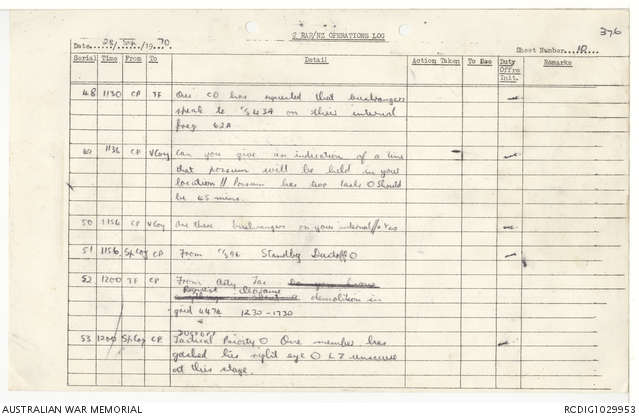 376
2 RAR/NZ OPERATIONS LOG
Date 28/Sep/19 70 Sheet Number 10
Serial Time From To Detail Action Taken To Due Duty Offrs Init. Remarks
48 1130 CP TF Our CO has requested that bushrangers
speak to C/S 43A on their internal
freq 62A
49 1136 CP VCoy Can you give an indication of a time
that possum will be held in your
location // Possum has two tasks O Should
be 45 mins.
50 1156 CP VCoy Are there bushrangers on your internal
51 1156 SpCoy CP From Standby Dustoff O
52 1200 TF CP From Arty Tac
Request clearance
demolition in
grid 4474 1230-1730
DUSTOFF
53 1200 SpCoy CP Tactical Priority O One member has
gashed his right eye O LZ unsecure
at this stage.
AUSTRALIAN WAR MEMORIAL RCDIG1029953